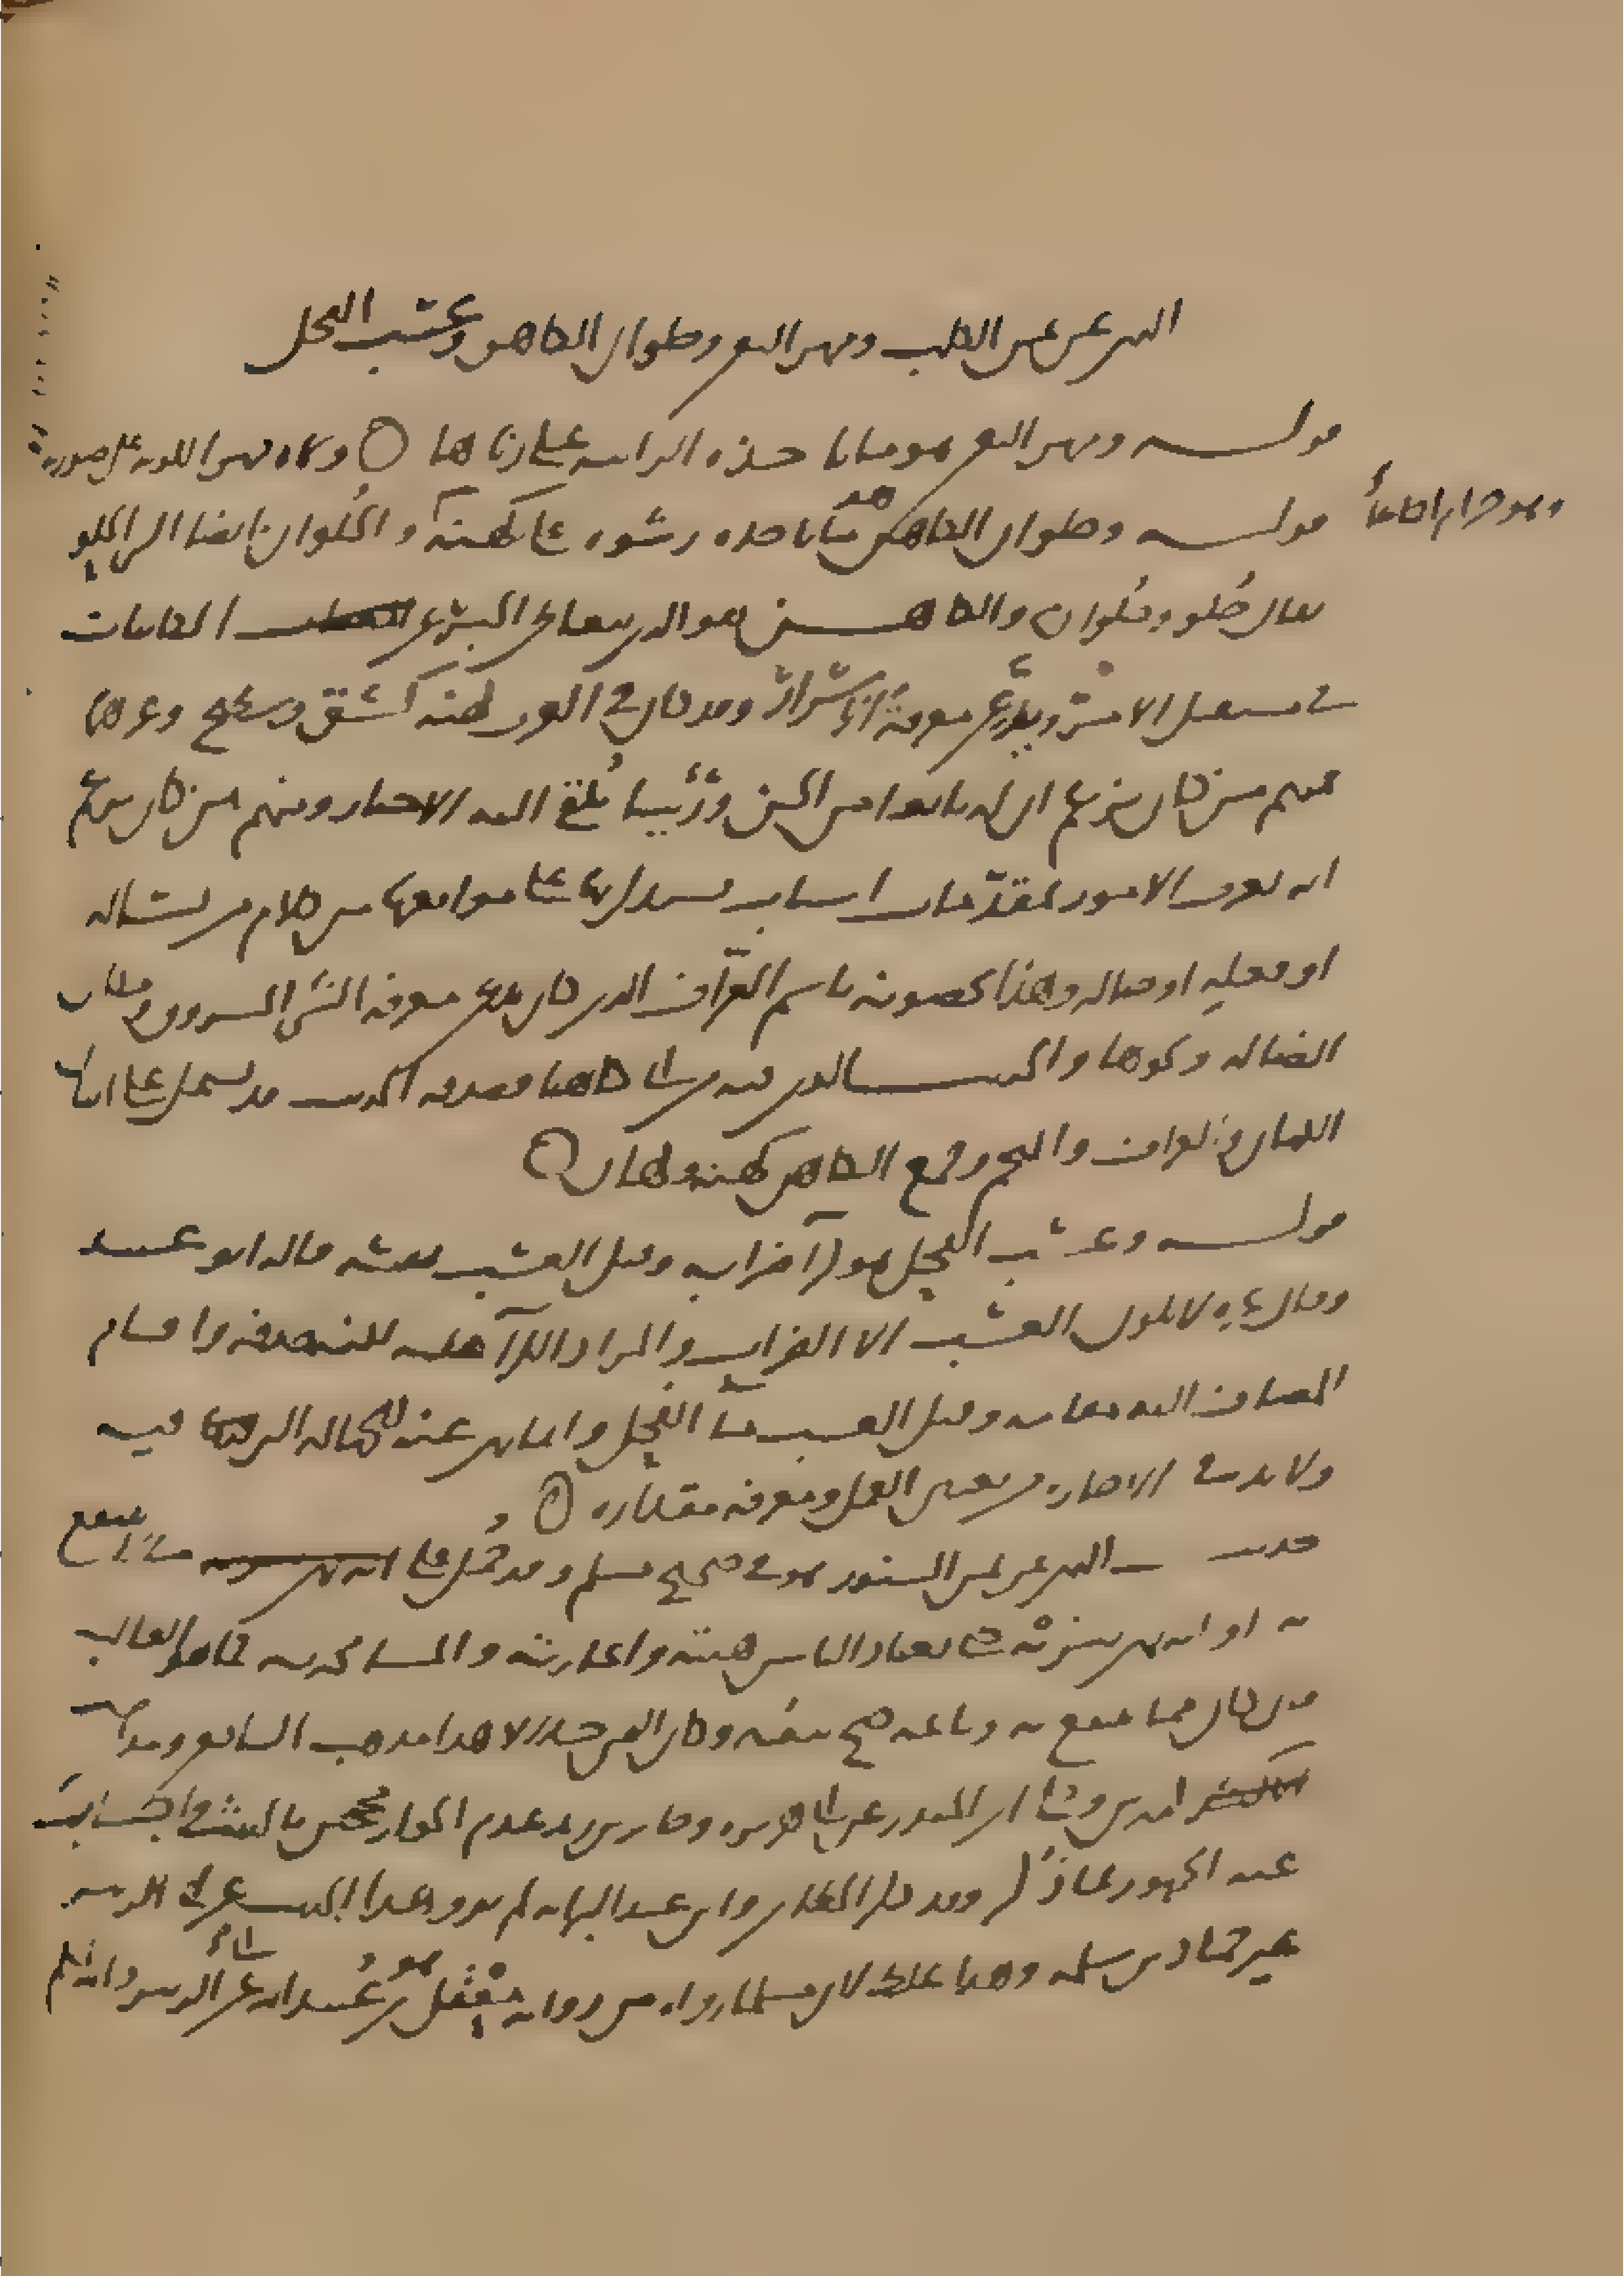 النهي عن ثمن الكلب ومهر البغي وحلوان الكاهن وعسب الفحل
قوله ومهر البغي هو ما تأخذه الزانية على زناها وسماه مهرا لكونه على صورته
وهو حرام اجماعا
قوله وحلوان الكاهن هو ما ياخذه رشوه على كهنته والحلوان ايضا الشي الحلو
يقال حلو وحلوان والكاهن هو الذي يتعاطى الخبر عن الكاينات
في مستقبل الزمن ويدعي معرفة الاسرار وقد كان في العرب كهنة كشق وسطيح وغيرهما
فمنهم من كان يزعم ان له تابعا من الجن ورئيا يلقي اليه الاخبار ومنهم من كان يزعم
انه يعرف الامور بمقدمات اسباب يستدل بها على مواقعها من كلام من يساله
او فعله او حاله وهذا يخصونه باسم العراف الذي كان يدعي معرفة الشي المسروق ومكان
الضالة ونحوها والحديث الذي فيه من اتى كاهنا فصدقه الحديث قد يشمل على اتيان
الكاهن والعراف والمنجم وجمع الكاهن كهنة وكهان
قوله وعسب الفحل هو كرا ضرابه وقيل العسب ماؤه قاله ابو عبيد
وقال غيره لا يكون العسب الا الضراب والمراد الكرا عليه لكنه حذفه واقام
المضاف اليه مقامه وقيل العسب ما الفحل وانما نهي عنه للجهالة التي فيه
ولا بد في الاجاره من تعيين العمل ومعرفة مقداره
حديث النهي عن ثمن السنور هو في صحيح مسلم وقد حمل على ما لا ينفع
به او انه نهي تنزيه حتى يعتاد الناس هبته واعارته والمسامحة به كما هو الغالب
فان كان مما ينتفع به وباعه صح بيعه وكان الثمن حلالا هذا مذهب الشافعي
ابن المنذر عن ابي هريره وطاوس وجابر بن زيد عدم الجواز محتجين بالحديث واجاب
عنه الجمهور بما ذكر وقد ذكر الخطابي وابن عبد البر انه لم يرو هذا الحديث عن ابي الزبير
غير حماد بن سلمه وهذا غلط لان مسلما رواه من روايه معقل بن عبيد الله عن ابي الزبير